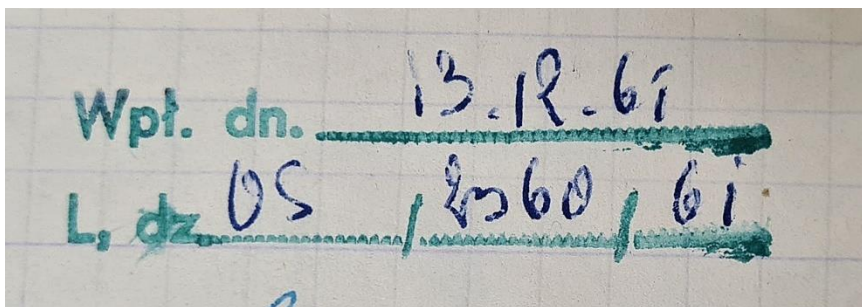 Wpł. dn. 13.12.61
L, dz. OS / 2960 / 61